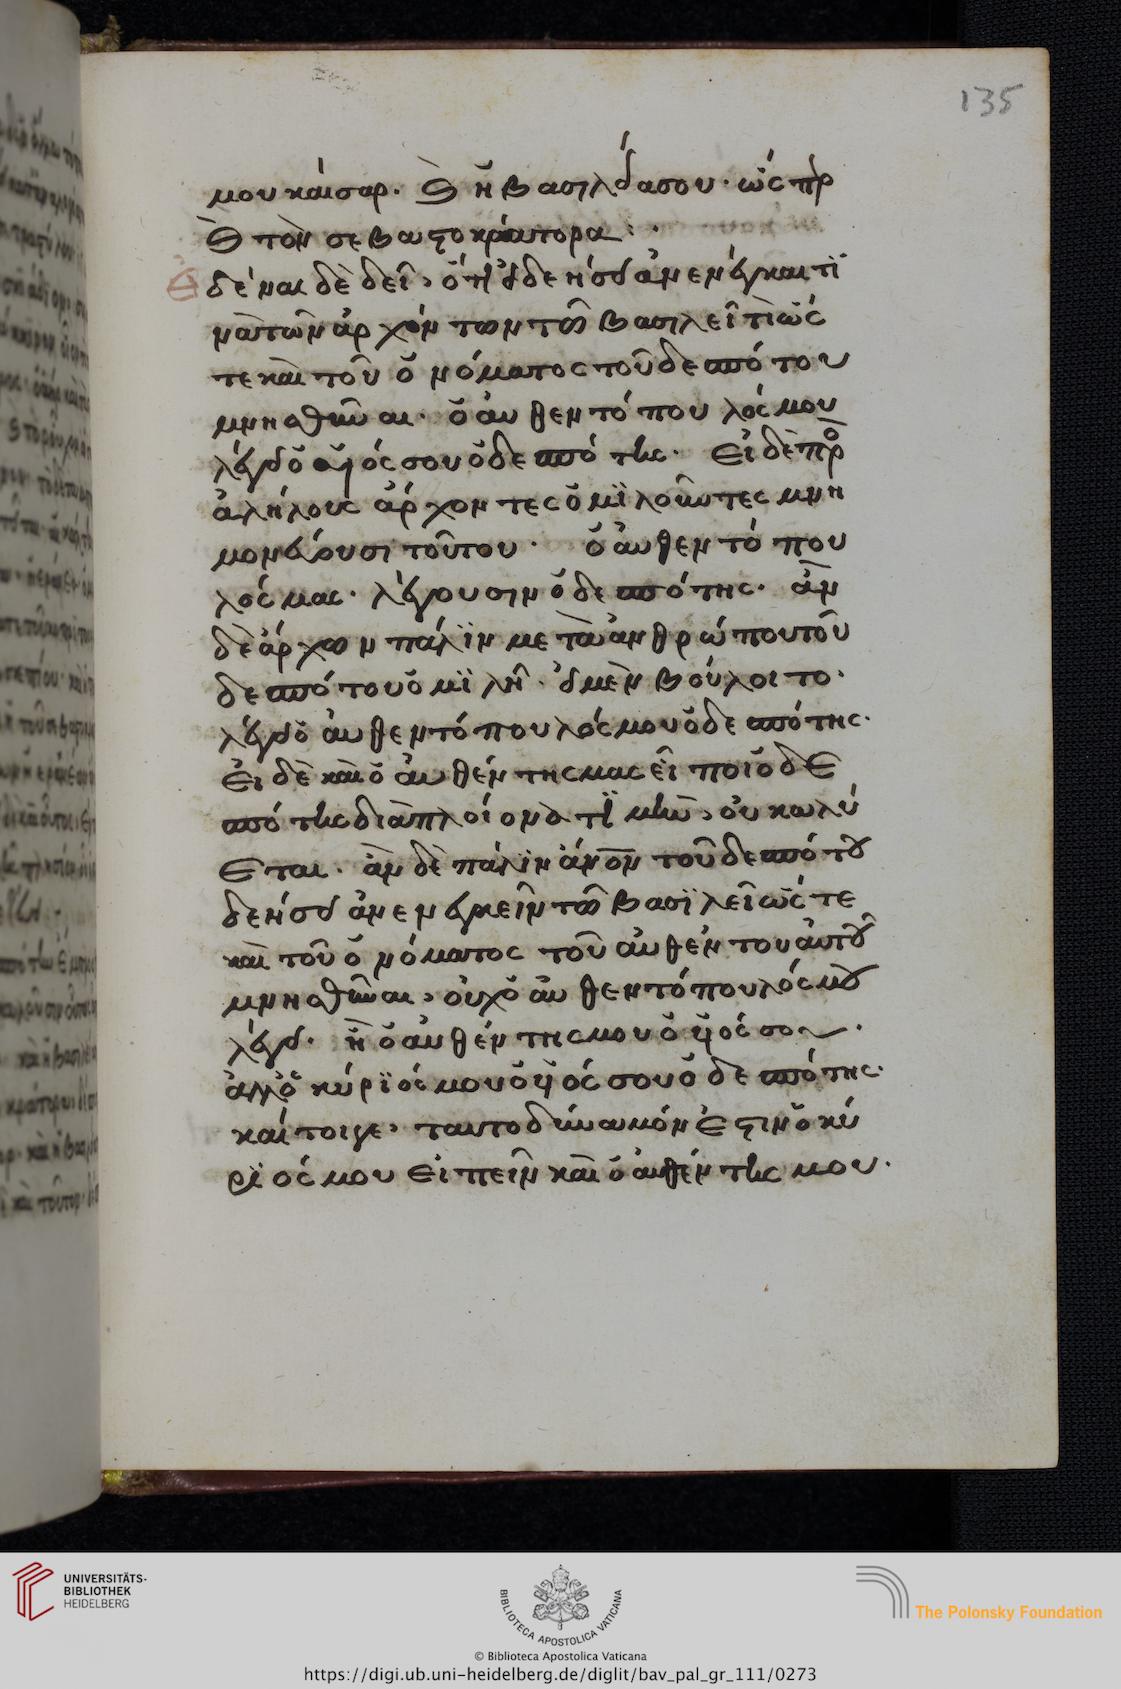 135
μου καίσαρ. καὶ ἡ βασιλεία σου. ὡς πρ
καὶ τὸν σεβαστοκράτορα
Εἰδέναι δὲ δεῖ, ὅτι εἰ δεήσει ἀνενέγκαι τϊ
νὰ τῶν ἀρχόντων τῶ βασιλεῖ τὶ ὥς
τε καὶ τοῦ ὀνόματος τοῦ δεσπότου
μνησθῆναι. ὁ αὐθεντόπουλός μου
λέγει ὁ υἱός σου ὁ δεσπότης. Εἰ δὲ πρὸ
ἀλήλους ἄρχοντες ὁμϊλοῦντες μνη
μονεύουσι τούτου. ὁ αὐθεντόπου
λός μας. λέγουσιν ὁ δεσπότης. ἂν
δὲ ἄρχων πάλϊν μετὰ ἀνθρώπου τοῦ
δεσπότου ὁμϊλῆ. εἰ μὲν βούλοιτο.
λέγει ὁ αὐθεντόπουλός μου ὁ δεσπότης.
Εἰ δὲ καὶ ὁ αὐθέντης μας εἴποι ὁ δε
σπότης διὰ πλείονα τϊμὴν, οὐ κωλύ
εται. ἂν δὲ πάλϊν ἄνον τοῦ δεσπότου
δεήσει ἀνενεγκεῖν τῶ βασϊλεῖ ὥς τε
καὶ τοῦ ὀνόματος τοῦ αὐθέντου αὐτοῦ
μνησθῆναι, οὐχ ὁ αὐθεντόπουλός μου
λέγει. ἢ ὁ αὐθέντης μου ὁ υἱός σου.
ἀλλ' ὁ κύρϊός μου ὁ υἱός σου ὁ δεσπότης.
καίτοιγε, ταυτοδύναμόν ἐστιν ὁ κύ
ρϊός μου εἰπεῖν καὶ ὁ αὐθέντης μου.
UNIVERSITÄTS-
BIBLIOTHEK
HEIDELBERG
BIBLIOTECA APOSTOLICA VATICANA
The Polonsky Foundation
© Biblioteca Apostolica Vaticana
https://digi.ub.uni-heidelberg.de/diglit/bav_pal_gr_111/0273